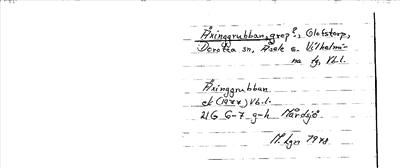 Åxinggrubban, grop?, Olofstorp,
Dorotea sn, Åsele o. Vilhelmi-
na tg, Vb.l.
Åxinggrubban
ek (1977) Vb.l.
21G 6-7 g-h Mårdsjö
M. Lgn 1978